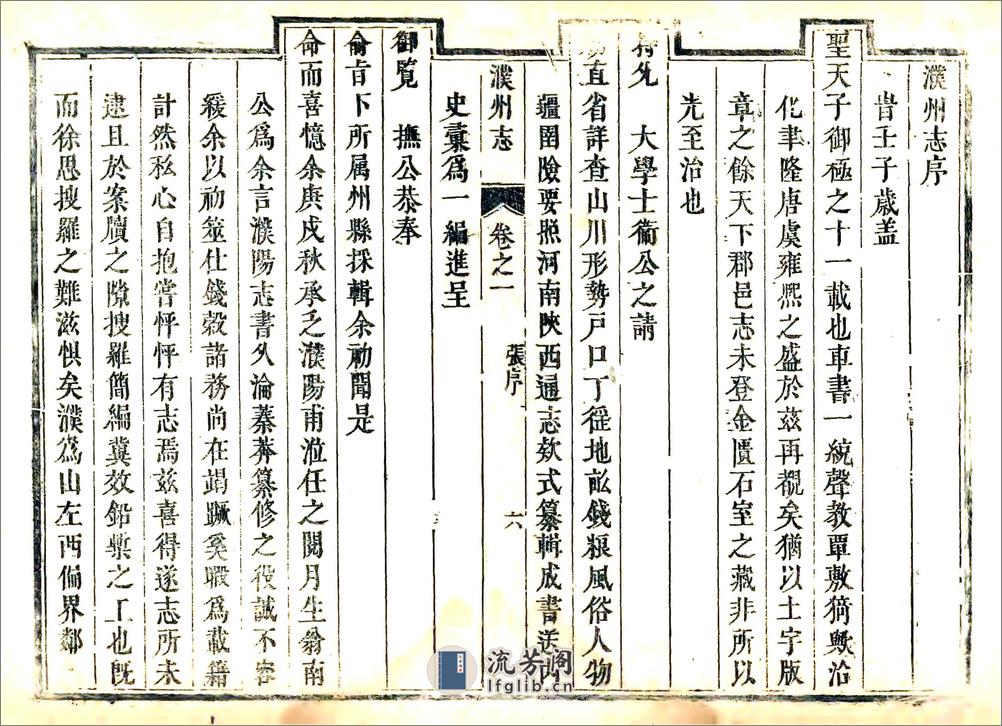 濮州志序
昔壬子歲盖
聖天子御極之十一載也車書一統聲教覃敷猗歟治
化聿隆唐虞雍熙之盛於兹再覩矣猶以土宇版
章之餘天下郡邑志未登金匱石室之藏非所以
光至治也
特允 大學士衞公之請
直省詳查山川形勢戸口丁徭地畝錢糧風俗人物
疆圉險要照河南陝西通志欵式纂輯成書送
濮州志 卷之一 張序 六
史彙爲一編進呈
御覽 撫公恭奉
俞旨下所属州縣採輯余初聞是
命而喜憶余庚戌秋承乏濮陽甫涖任之閱月生翁南
公爲余言濮陽志書久淪蓁莽纂修之役誠不容
緩余以初筮仕錢榖諸務尚在竭蹶奚暇爲載籍
計然私心自抱嘗怦怦有志焉兹喜得遂志所未
逮且於案牘之隙搜羅簡編冀效鉛槧之工也旣
而徐思搜羅之難滋惧矣濮為山左西偏界鄰
流芳阁
lfglib.cn